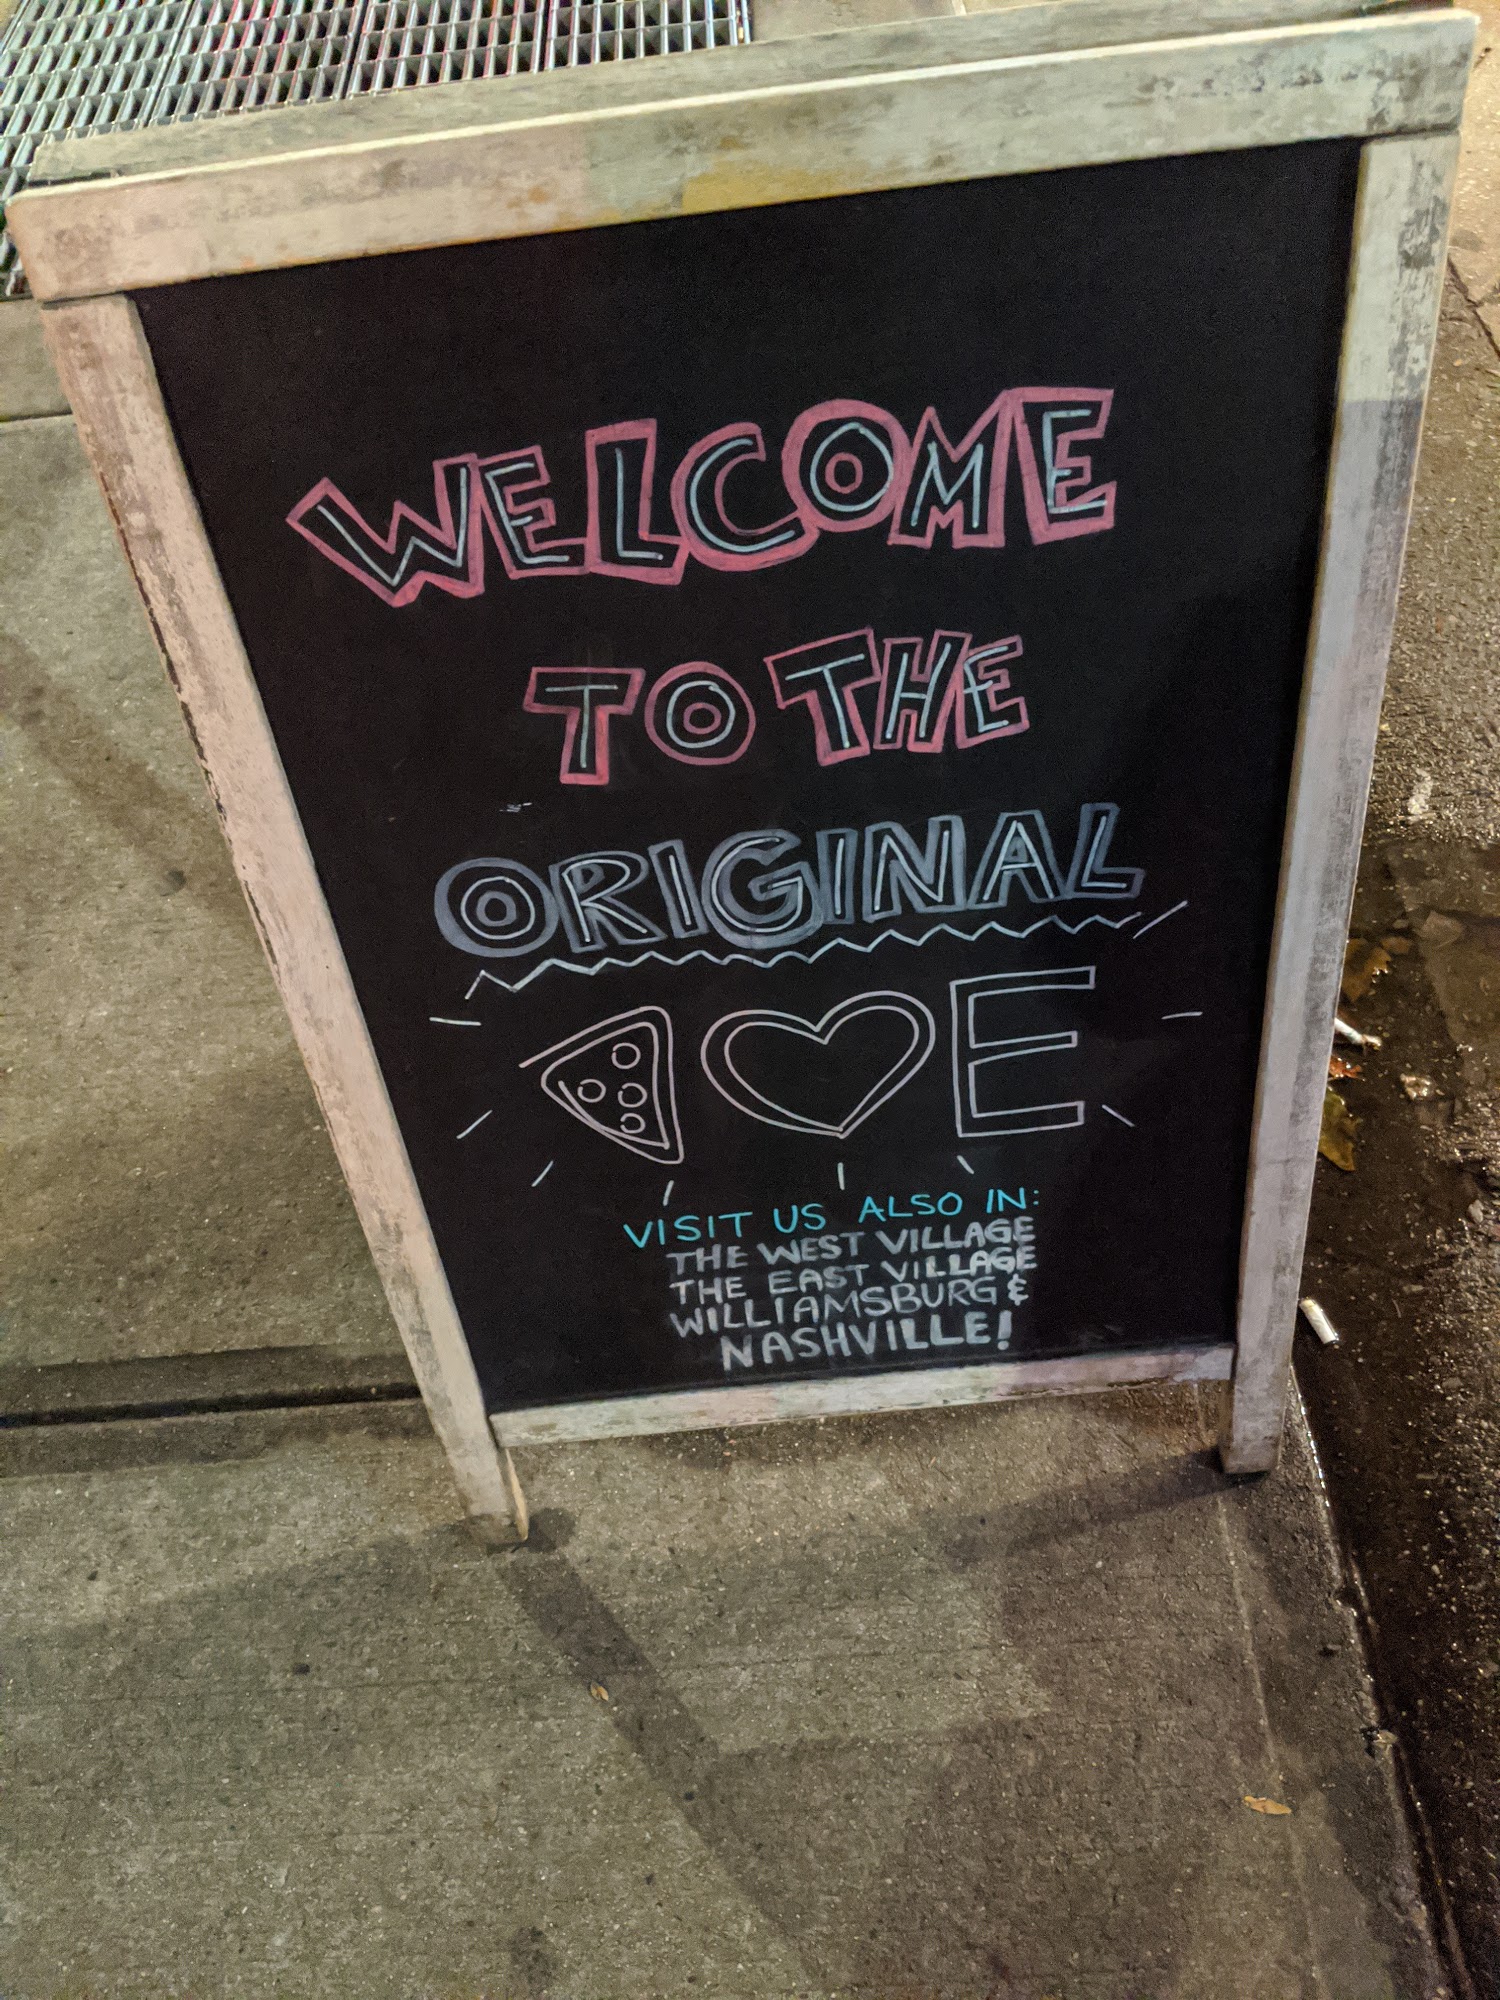 WELCOME
TO THE
ORIGINAL
E
VISIT US ALSO IN:
THE WEST VILLAGE
THE EAST VILLAGE
WILLIAMSBURG &
NASHVILLE!